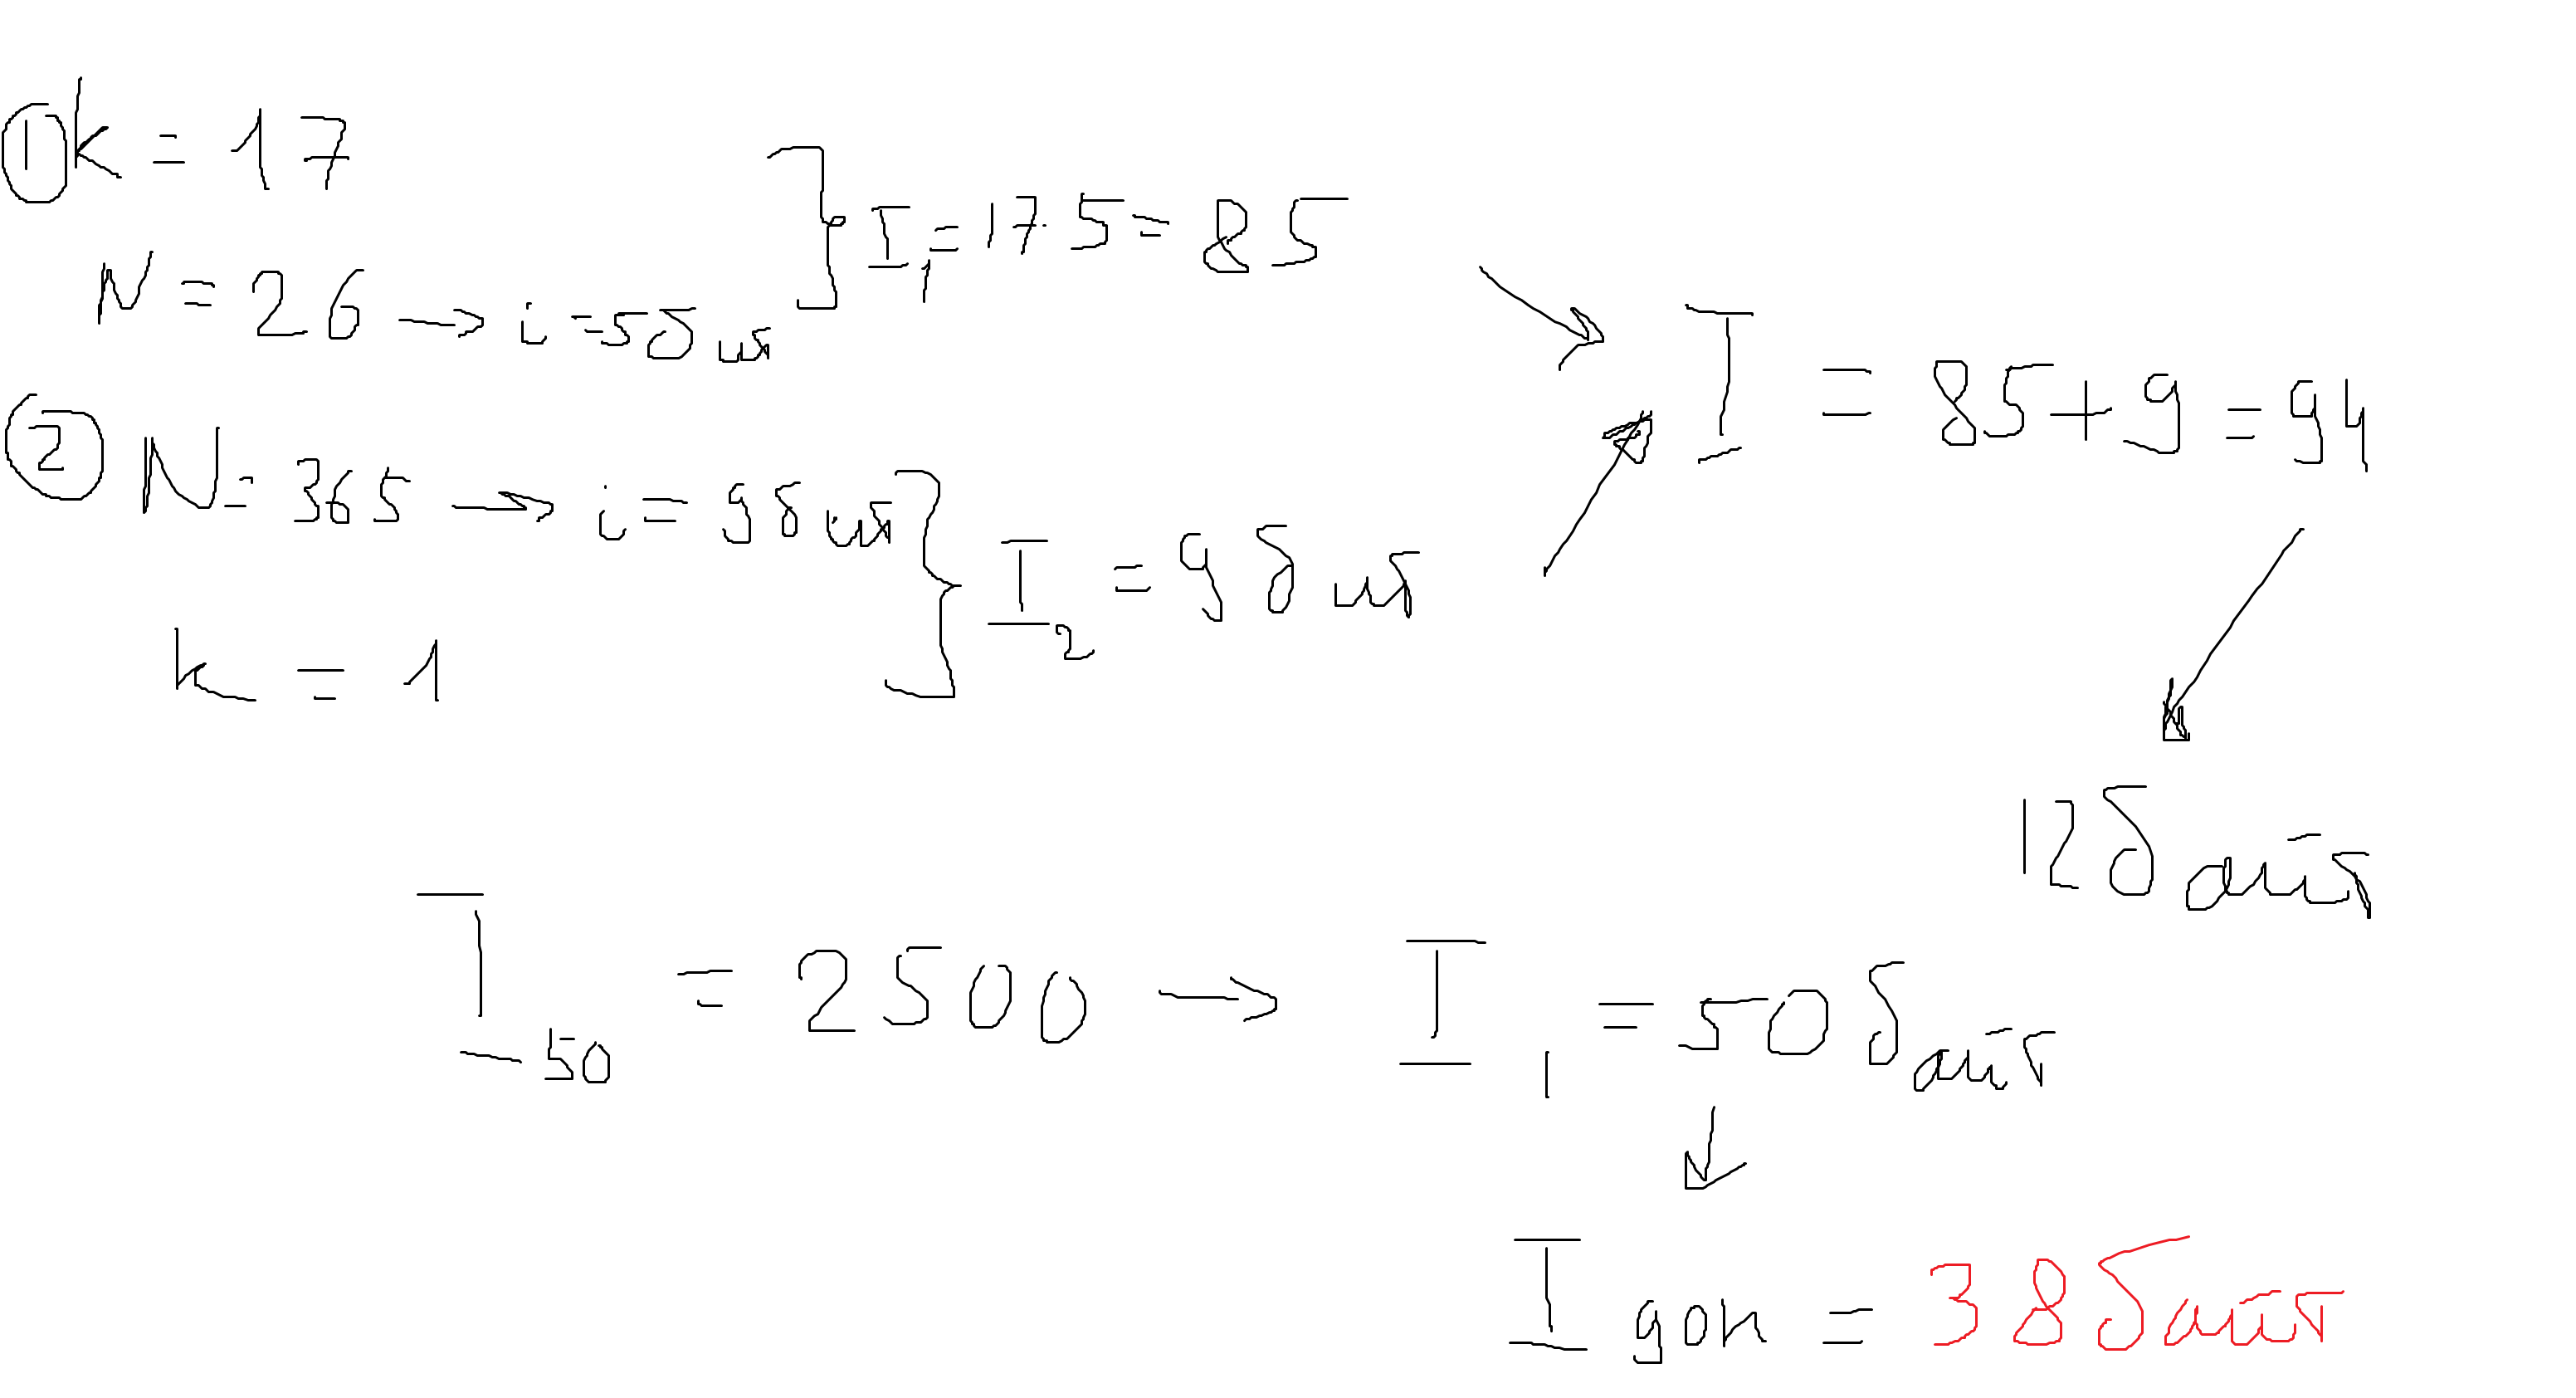 ① k = 17
N = 26 → i = 5 бит
I₁ = 17·5 = 85
② N = 365 → i = 9 бит
k = 1
I₂ = 9 бит
I = 85 + 9 = 94
12 байт
I₅₀ = 2500 → I₁ = 50 байт
I доп = 38 байт